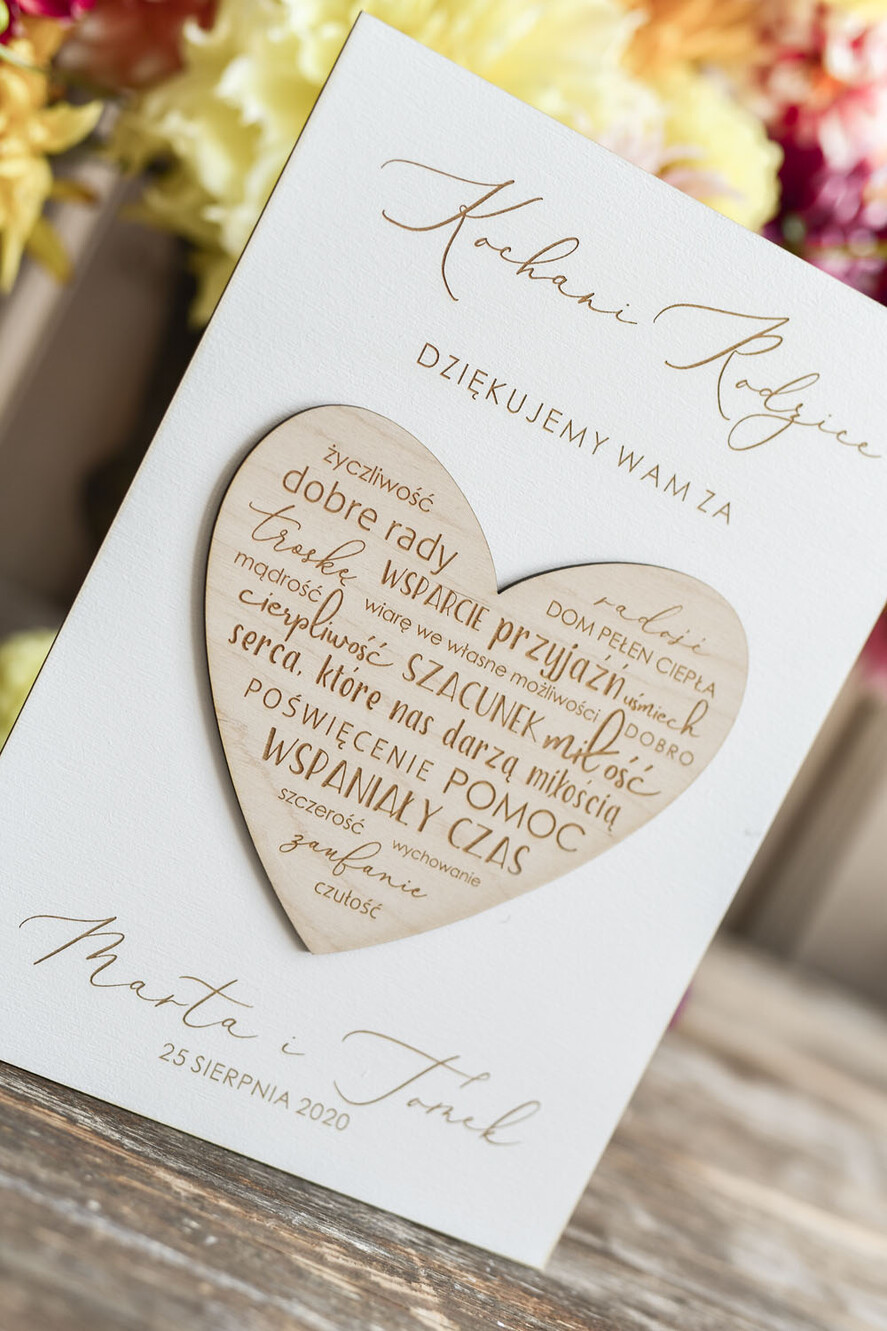 Kochani Rodzice
DZIĘKUJEMY WAM ZA
życzliwość
dobre rady
troskę WSPARCIE przyjaźń radość
mądrość wiarę we własne możliwości DOM PEŁEN CIEPŁA
cierpliwość SZACUNEK miłość uśmiech
serca, które nas darzą miłością DOBRO
POŚWIĘCENIE POMOC
WSPANIAŁY CZAS
szczerość wychowanie
zaufanie
czułość
Marta i Tomek
25 SIERPNIA 2020